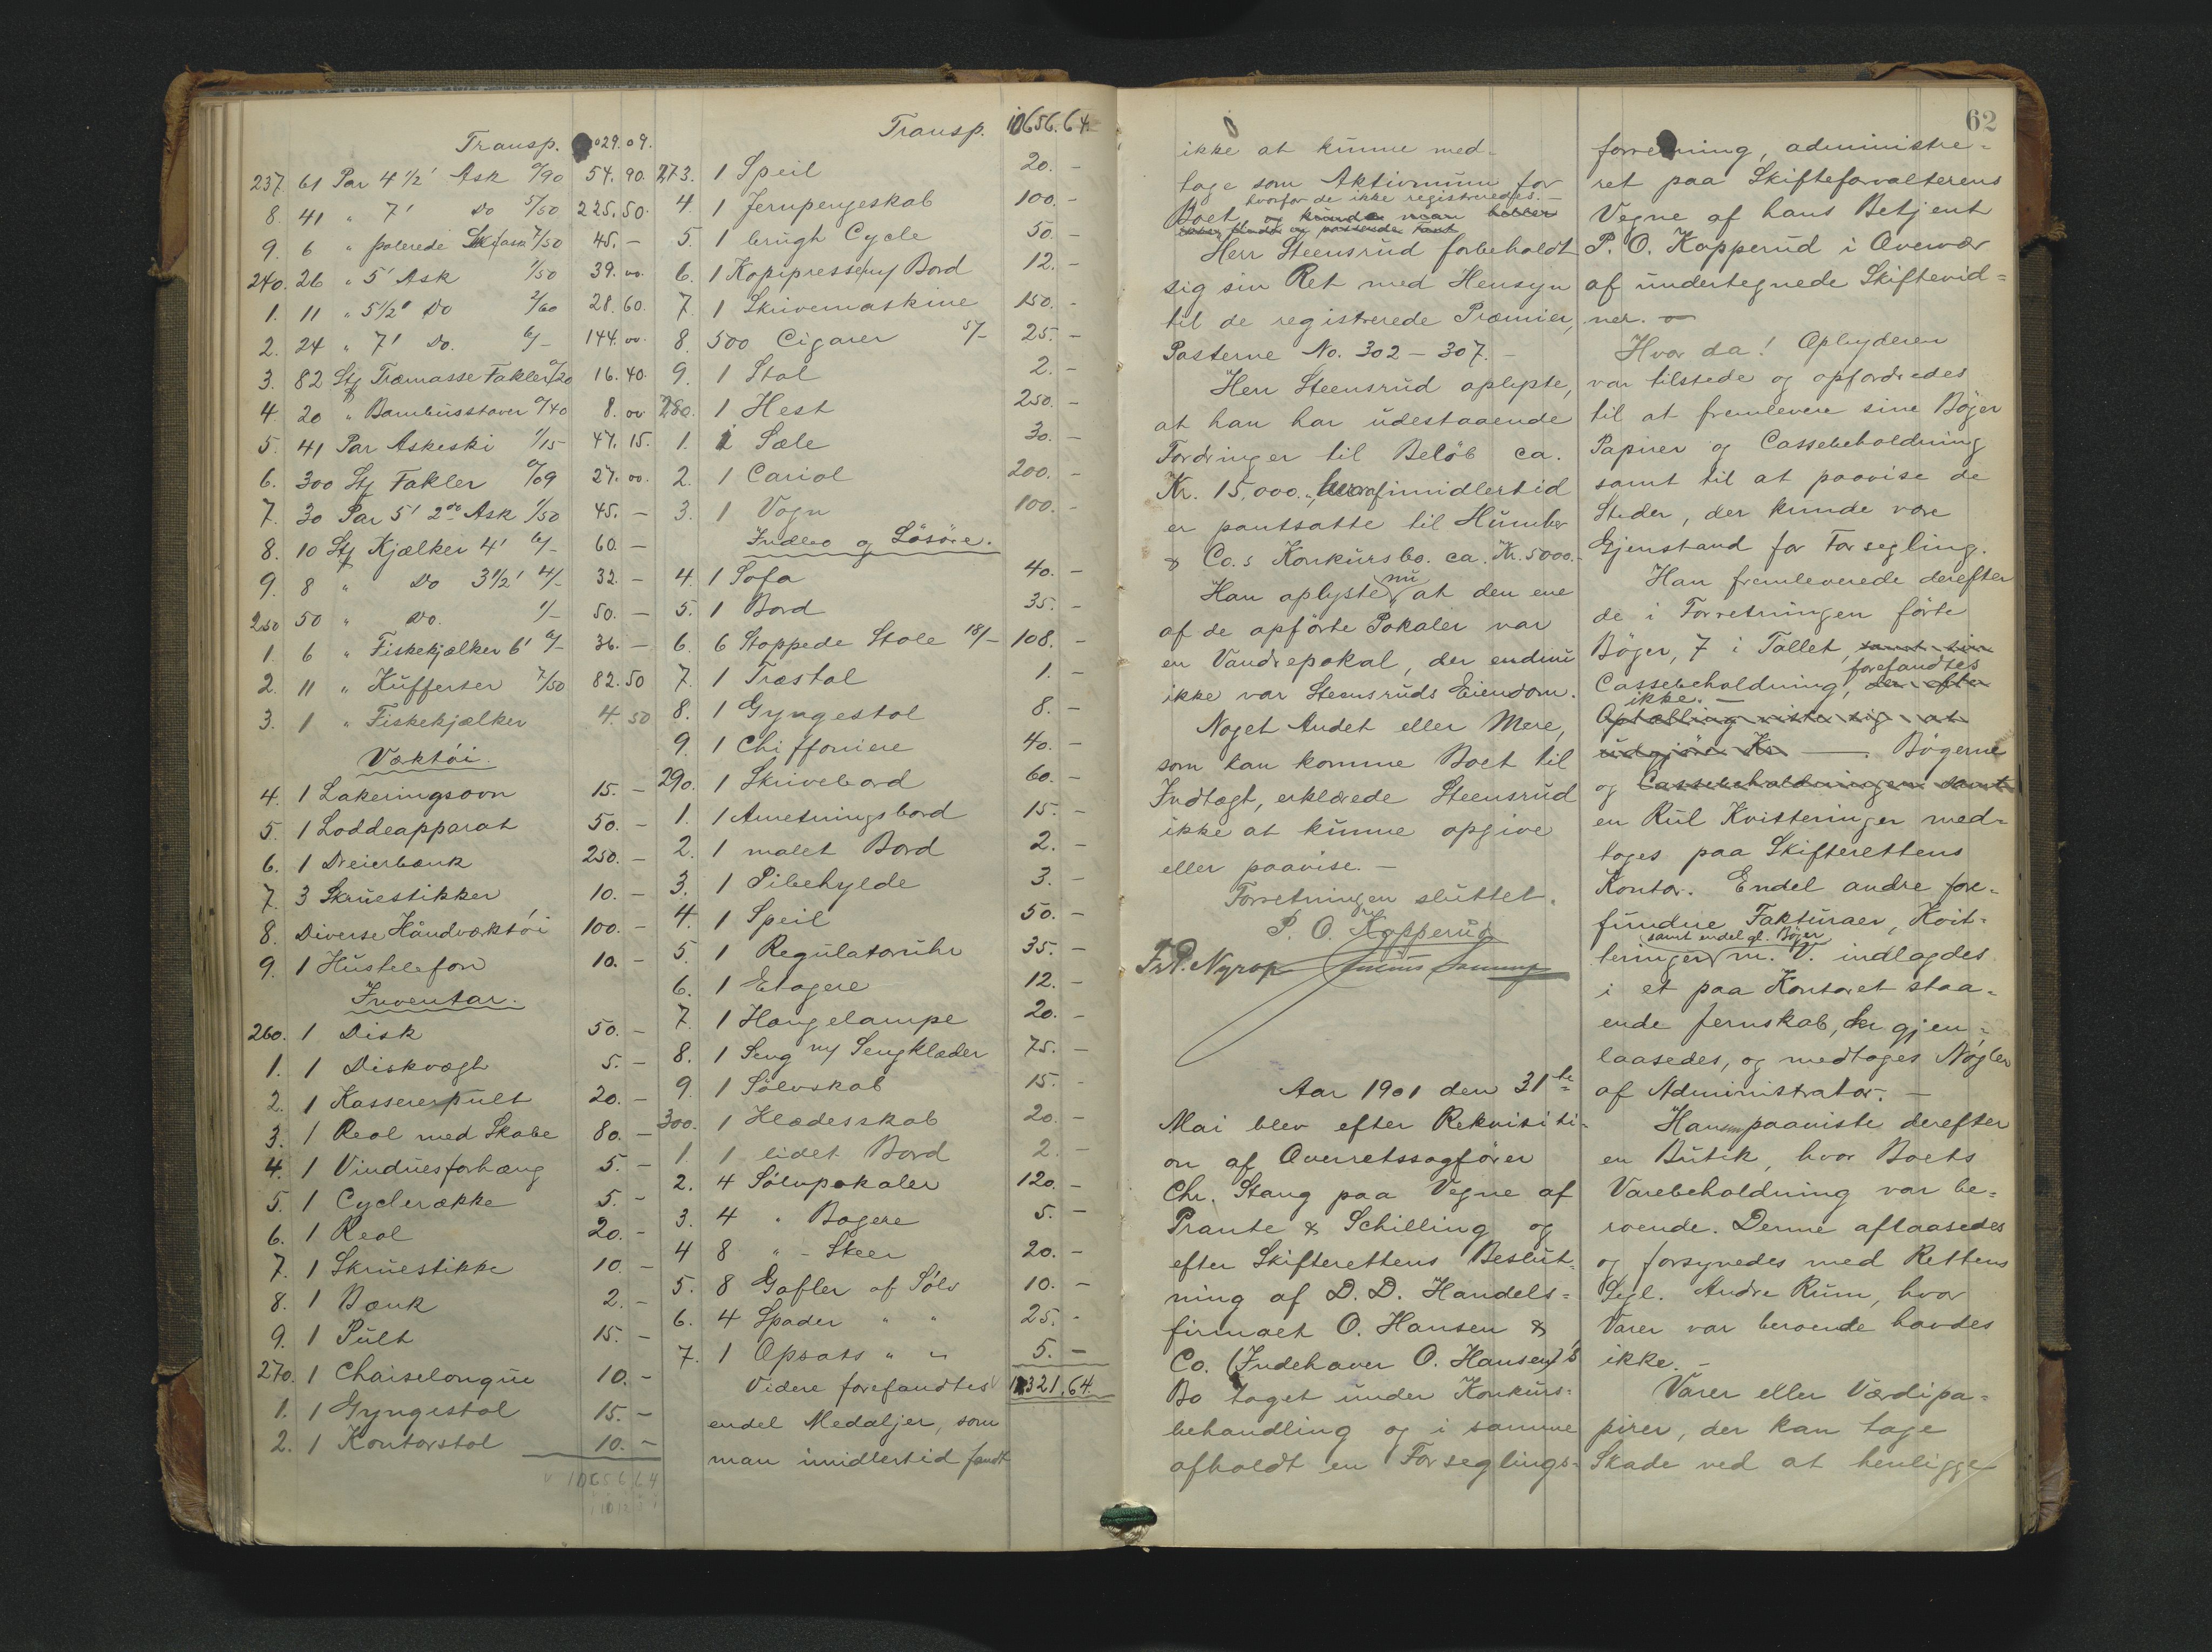 Transp. 029.09.
237. 61 Par 4 1/2' Ask 0/90 54.90.
8. 41 " 7' Do 5/50 225.50.
9. 6 " polerede 7/50 45.-
240. 26 " 5' Ask 1/50 39.00.
1. 11 " 5 1/2' Do 2/60 28.60.
2. 24 " 7' Do. 6/- 144.00.
3. 82 Stg Træmasse Fakler 0/20 16.40.
4. 20 " Bambusstaver 0/40 8.00
5. 41 Par Askeski 1/15 47.15.
6. 300 Stg Fakler 0/09 27.00.
7. 30 Par 5' 2den Ask 1/50 45.-
8. 10 Stg Kjælker 4' 6/- 60.-
9. 8 " Do 3 1/2' 4/- 32.-
250 50 " Do. 1/- 50.-
1. 6 " Fiskekjælker 6' 6/- 36.-
2. 11 " Kufferter 7/50 82.50
3. 1 " Fiskekjælker 4.50
Værktöi.
4. 1 Lakeringsovn 15.-
5. 1 Loddeapparat 50.-
6. 1 Dreierbænk 250.-
7. 3 Skruestikker 10.-
8. Diverse Håndværktöi 100.-
9. 1 Hustelefon 10.-
Inventar.
260. 1 Disk 50.-
1. 1 Diskvægt 5.-
2. 1 Kassererpult 20.-
3. 1 Reol med Skabe 80.-
4. 1 Vinduesforhæng 5.-
5. 1 Cyclerække 5.-
6. 1 Reol 20.-
7. 1 Skruestikke 10.-
8. 1 Bænk 2.-
9. 1 Pult 15.-
270. 1 Chaiselongue 10.-
1. 1 Gyngestol 15.-
2. 1 Kontorstol 10.-
10656.64
Transp. 10656.64
273. 1 Speil 20.-
4. 1 Jernpengeskab 100.-
5. 1 brugt Cycle 50.-
6. 1 Kopipresse m/ Bord 12.-
7. 1 Skrivemaskine 150.-
8. 500 Cigarer 5/- 25.-
9. 1 Stol 2.-
280. 1 Hest 250.-
1. 1 Sæle 30.-
2. 1 Cariol 200.-
3. 1 Vogn 100.-
Indbo og Lösöre.
4. 1 Sofa 40.-
5. 1 Bord 35.-
6. 6 Stoppede Stole 18/- 108.-
7. 1 Træstol 1.-
8. 1 Gyngestol 8.-
9. 1 Chiffoniere 40.-
290. 1 Skrivebord 60.-
1. 1 Anretningsbord 15.-
2. 1 malet Bord 2.-
3. 1 Pibehylde 3.-
4. 1 Speil 50.-
5. 1 Regulatoruhr 35.-
6. 1 Etagere 12.-
7. 1 Hængelampe 20.-
8. 1 Seng m/ Sengklæder 75.-
9. 1 Sölvskab 15.-
300. 1 Klædesskab 20.-
1. 1 lidet Bord 2.-
2. 4 Sölvpokaler 120.-
3. 4 " Bægere 5.-
4 8 " - Skeer 20.-
5. 8 Gafler af Sölv 10.-
6. 4 Spader " " 25.-
7. 1 Opsats " " 5.-
Videre forefandtes 12321.64.
endel Medaljer, som
man imidlertid fandt
62
ikke at kunne med-
tage som Aktivmum for
hvorfor de ikke registreredes.-
Boet, og kunde man heller
Herr Steensrud forbeholdt
sig sin Ret med Hensyn
til de registrerede Præmier,
Posterne No. 302 - 307.-
Herr Steensrud oplyste,
at han har udestaaende
Fordringer til Belöb ca.
Kr. 15,000., hvoraf imidlertid
er pantsatte til Humber
& Co.s Konkursbo. ca. Kr. 5000.-
Han oplyste nu at den ene
af de opförte Pokaler var
en Vandrepokal, der endnu
ikke var Steensruds Eiendom.
Noget Andet eller Mere,
som kan komme Boet til
Indtægt, erklærede Steensrud
ikke at kunne opgive
eller paavise.-
Forretningen sluttet.
P. O. Kopperud
Fr. P. Nyrop
Aar 1901 den 31te
Mai blev efter Rekvisiti-
on af Overretssagförer
Chr. Stang paa Vegne af
Prante & Schilling og
efter Skifterettens Beslut-
ning af D. D. Handels-
firmaet O. Hansen &
Co. (Indehaver O. Hansen)'s
Bo taget under Konkurs-
behandling og i samme
afholdt en Forseglings-
forretning, administre-
ret paa Skifteforvalterens
Vegne af hans Betjent
P. O. Kopperud i Overvær
af undertegnede Skiftevid-
ner.-
Hvor da! Opbyderen
var tilstede og opfordredes
til at fremlevere sine Böger
Papirer og Cassebeholdning
samt til at paavise de
Steder, der kunde være
Gjenstand for Forsegling.
Han fremleverede derefter
de i Forretningen förte
Böger, 7 i Tallet, samt sin
forefandtes
Cassebeholdning, der efter
ikke.-
Optælling viste sig at
udgjöre Kr - . Bögerne
og Cassebeholdningen samt
en Rul Kvitteringer med-
toges paa Skifterettens
Kontor. Endel andre fore-
fundne Fakturaer, Kvit-
samt endel gl. Böger
teringer m. V. indlagdes
i et paa Kontoret staa-
ende Jernskab, der gjen-
laasedes, og medtoges Nögler
af Administrator.-
Han paaviste derefter
en Butik, hvor Boets
Varebeholdning var be-
roende. Denne aflaasedes
og forsynedes med Rettens
Segl. Andre Rum, hvor
Varer var beroende havdes
ikke.-
Varer eller Værdipa-
pirer, der kan tage
Skade ved at henligge